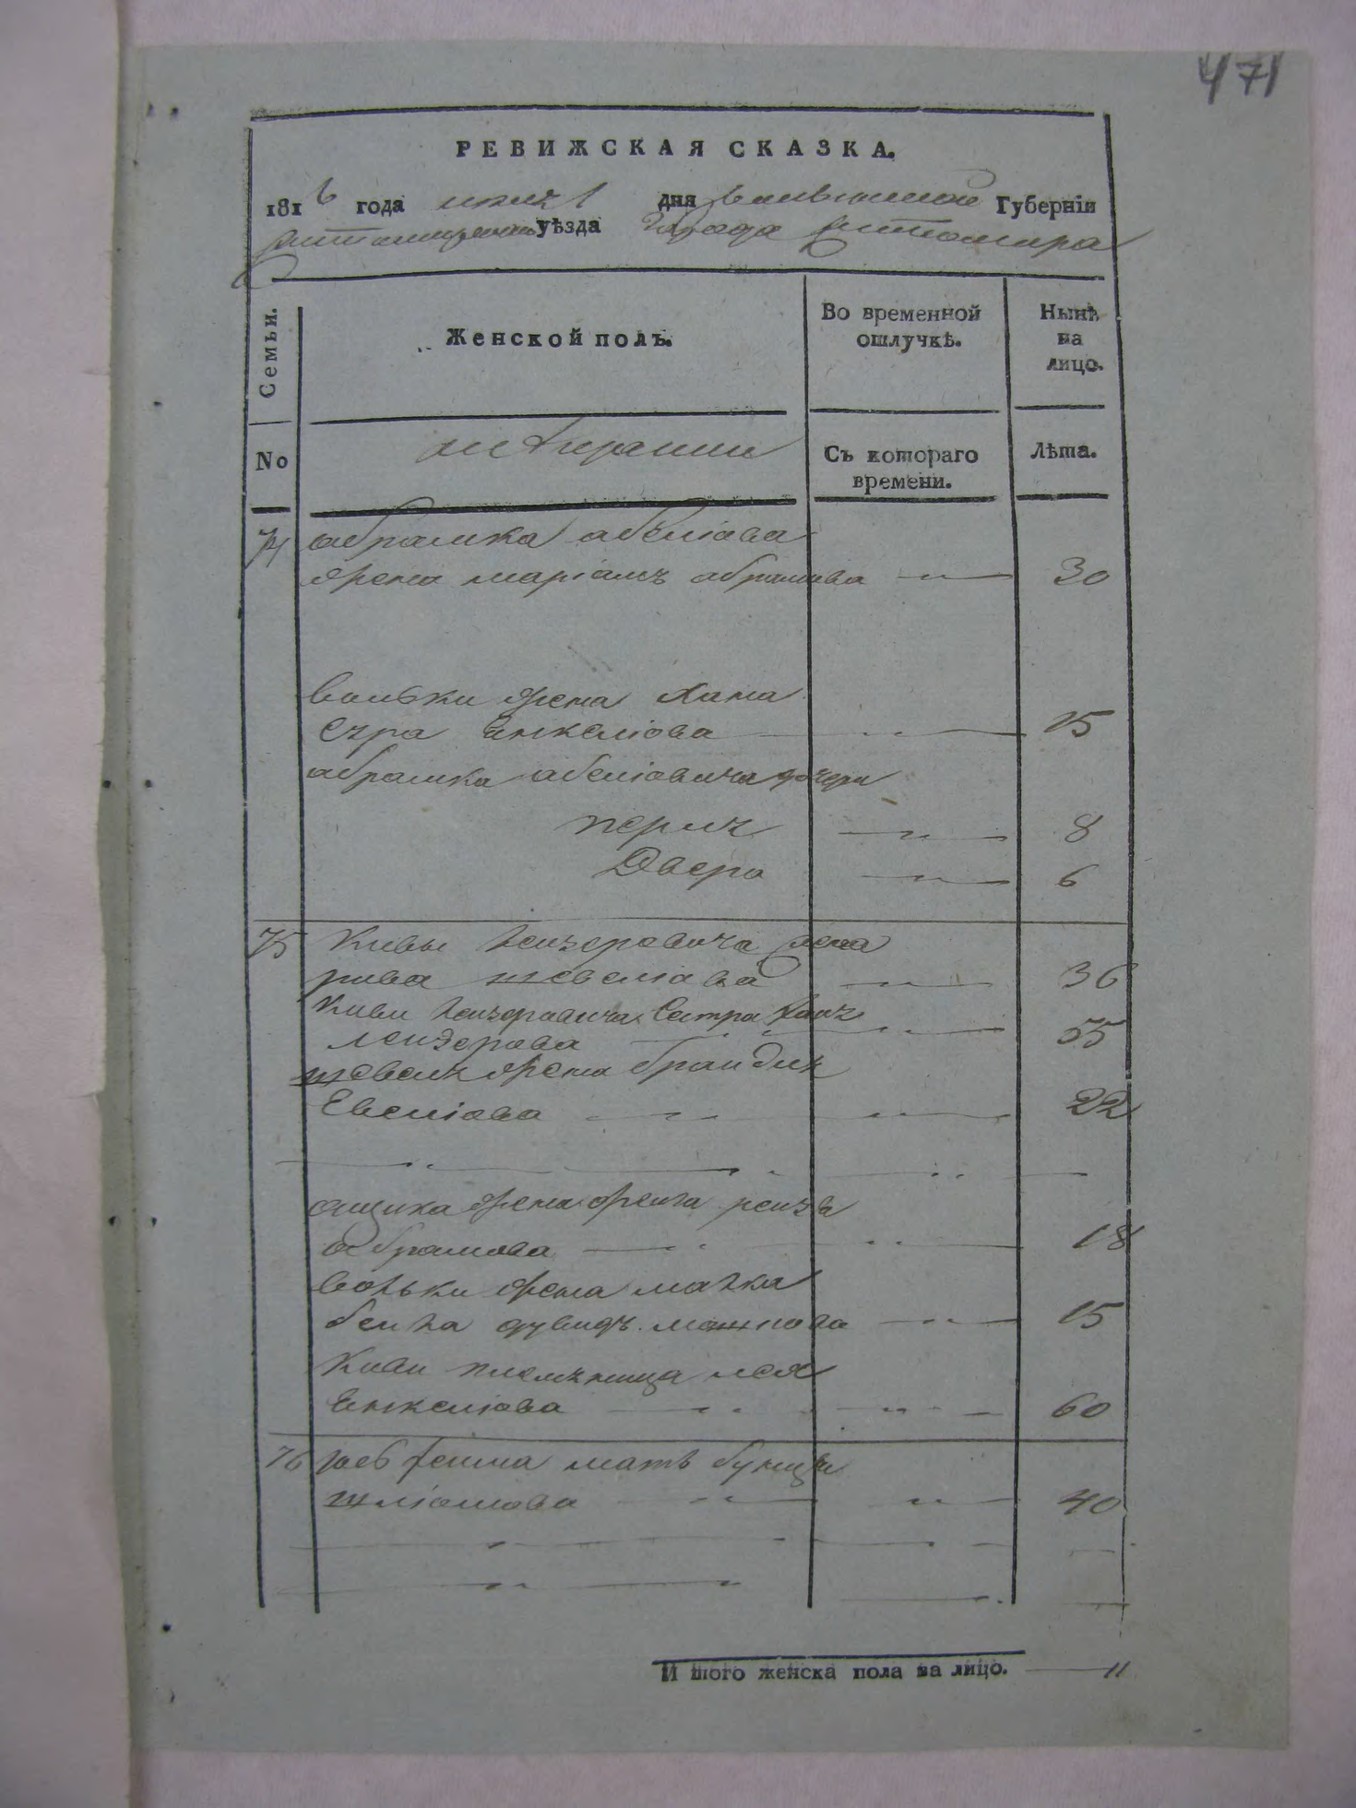 471
РЕВИЖСКАЯ СКАЗКА.
1816 года июля 1 дня Волынской Губерніи
Житомирского уѣзда Города Житомира
Семьи.
Женской полъ.
Во временной отлучкѣ.
Нынѣ на лицо.
No
Съ котораго времени.
Лѣта.
74 абрамка абеліова
жена маріамъ абрамова 30
вольки жена Хана
Сура Енкеліова 15
абрамка абеліовича дочери
перлъ 8
Двера 6
75 Кивы Леизеровича жена
рива шевеліова 36
Киви Леизеровича Сестра Хаиъ
леизерова 55
шевелъ жена браидлъ
Евеліова 22
жена фреига реизъ
абрамова 18
вольки жена малка
беила дувидъ 15
Киви племъница лея
Енкеліова 60
76 мать
шліомова 40
Итого женска пола на лицо. 11